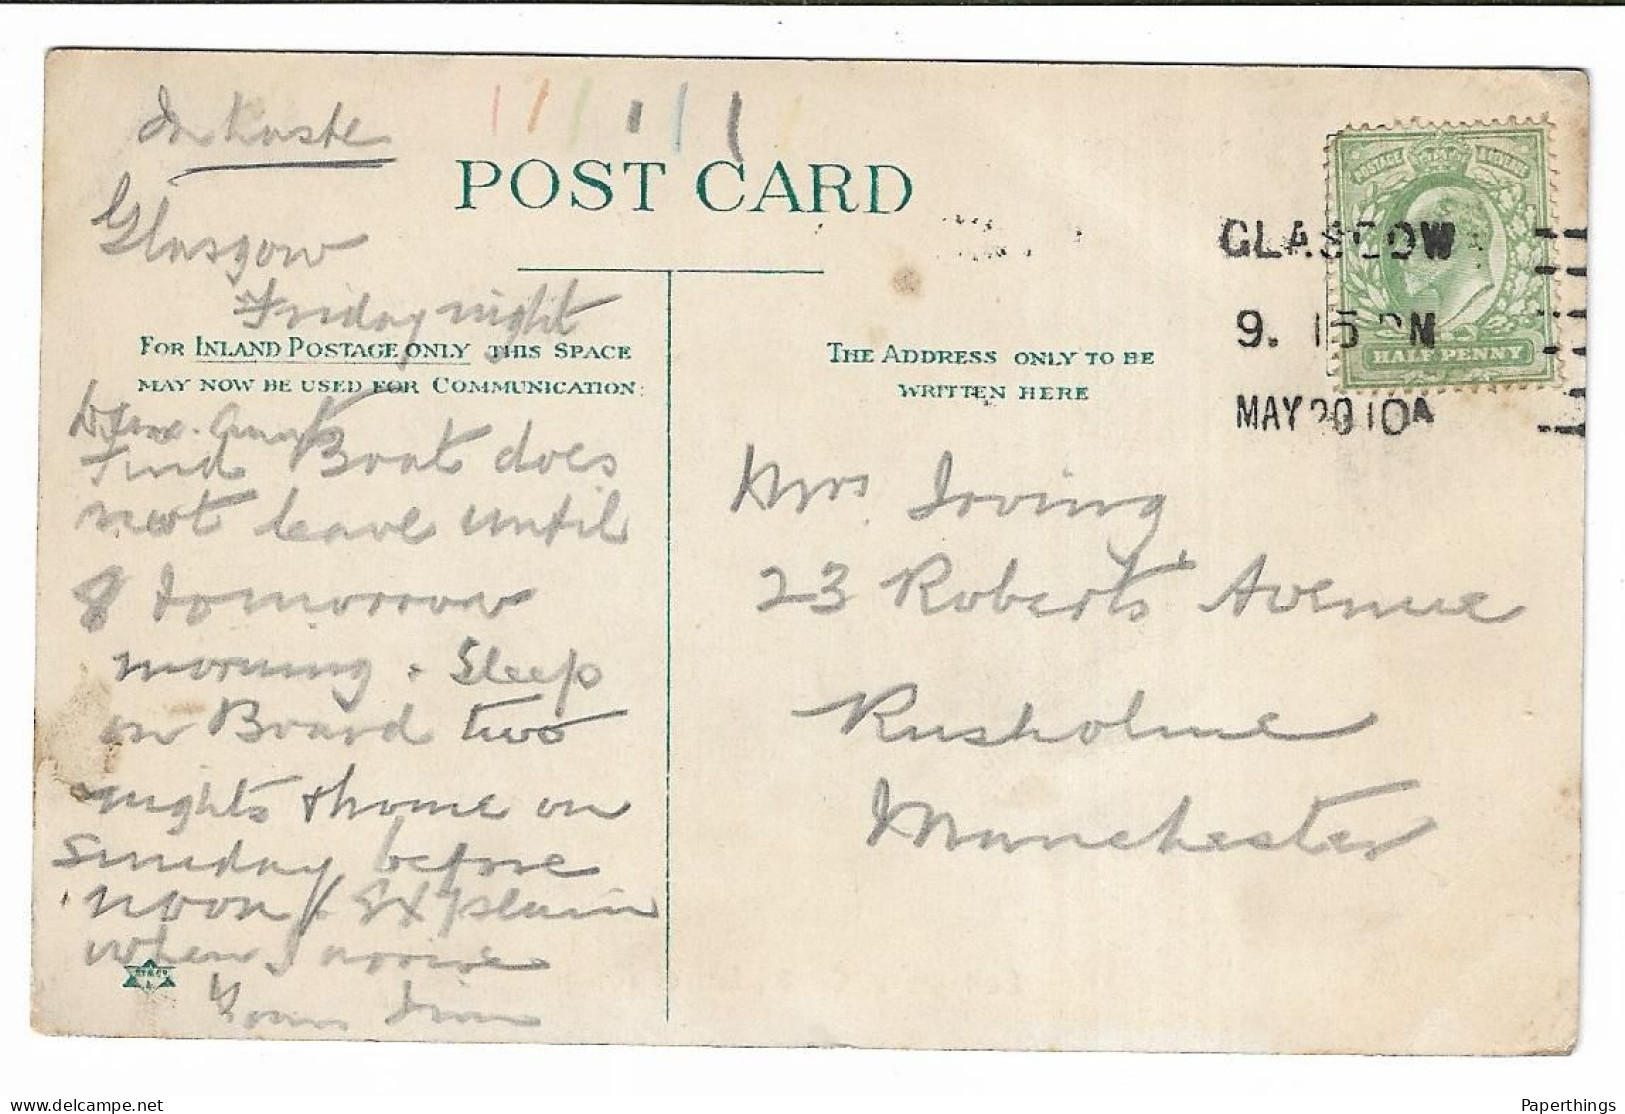 In haste
Glasgow
Friday night
POST CARD
FOR INLAND POSTAGE ONLY THIS SPACE
MAY NOW BE USED FOR COMMUNICATION:
THE ADDRESS ONLY TO BE
WRITTEN HERE
GLASGOW
9. 15 PM
MAY 20 10
HALF PENNY
Find Boat does
not leave until
8 tomorrow
morning. Sleep
on Board two
nights & home on
Sunday before
noon. Explain
when I arrive
Yours
Mrs Irving
23 Roberts Avenue
Rusholme
Manchester
delcampe.net
Paperthings